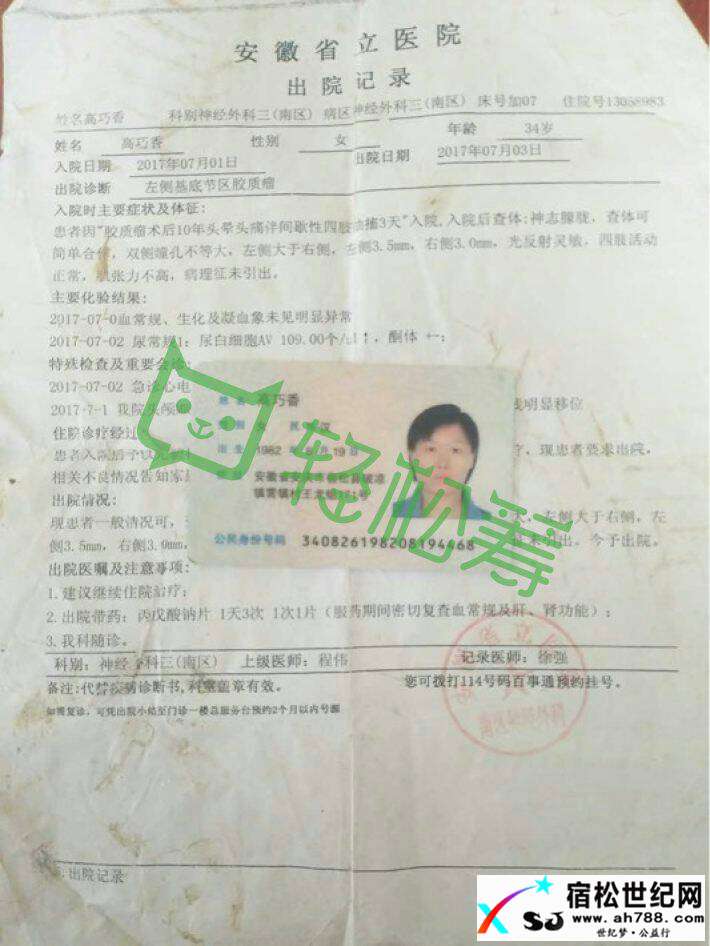 安徽省立医院
出院记录
姓名高巧香 科别神经外科三(南区) 病区神经外科三(南区) 床号加07 住院号13058983
姓名 高巧香 性别 女 年龄 34岁
入院日期 2017年07月01日 出院日期 2017年07月03日
出院诊断 左侧基底节区胶质瘤
入院时主要症状及体征:
患者因"胶质瘤术后10年头晕头痛伴间歇性四肢抽搐3天"入院,入院后查体:神志朦胧,查体可
简单合作,双侧瞳孔不等大,左侧大于右侧,左侧3.5mm,右侧3.0mm,光反射灵敏,四肢活动
正常,肌张力不高,病理征未引出。
主要化验结果:
2017-07-0血常规、生化及凝血象未见明显异常
2017-07-02 尿常规1: 尿白细胞AV 109.00个/ul↑,酮体
特殊检查及重要会诊:
2017-07-02 急诊心电
2017-7-1 我院头颅 线明显移位
住院诊疗经过
患者入院后予以 疗,现患者要求出院,
相关不良情况告知家属
出院情况:
现患者一般情况可, 大,左侧大于右侧,左
侧3.5mm,右侧3.0mm, 未引出。今予出院。
出院医嘱及注意事项:
1.建议继续住院治疗;
2.出院带药:丙戊酸钠片 1天3次 1次1片(服药期间密切复查血常规及肝、肾功能);
3.我科随诊。
科别:神经外科三(南区) 上级医师:程伟 记录医师:徐强
备注:代替疾病诊断书,科室盖章有效。 您可拨打114号码百事通预约挂号。
如需复诊,可凭出院小结至门诊一楼总服务台预约2个月以内号源
出院记录
姓名 高巧香
性别 女 民族 汉
出生 1982年8月19日
镇雷镇村王龙组171号
公民身份号码 340826198208194468
轻松筹
XSJ 宿松世纪网
www.ah788.com
世纪梦·公益行